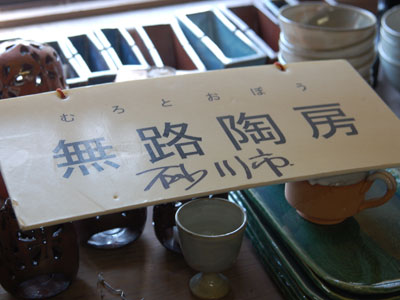 むろとおぼう
無路陶房
砂川市